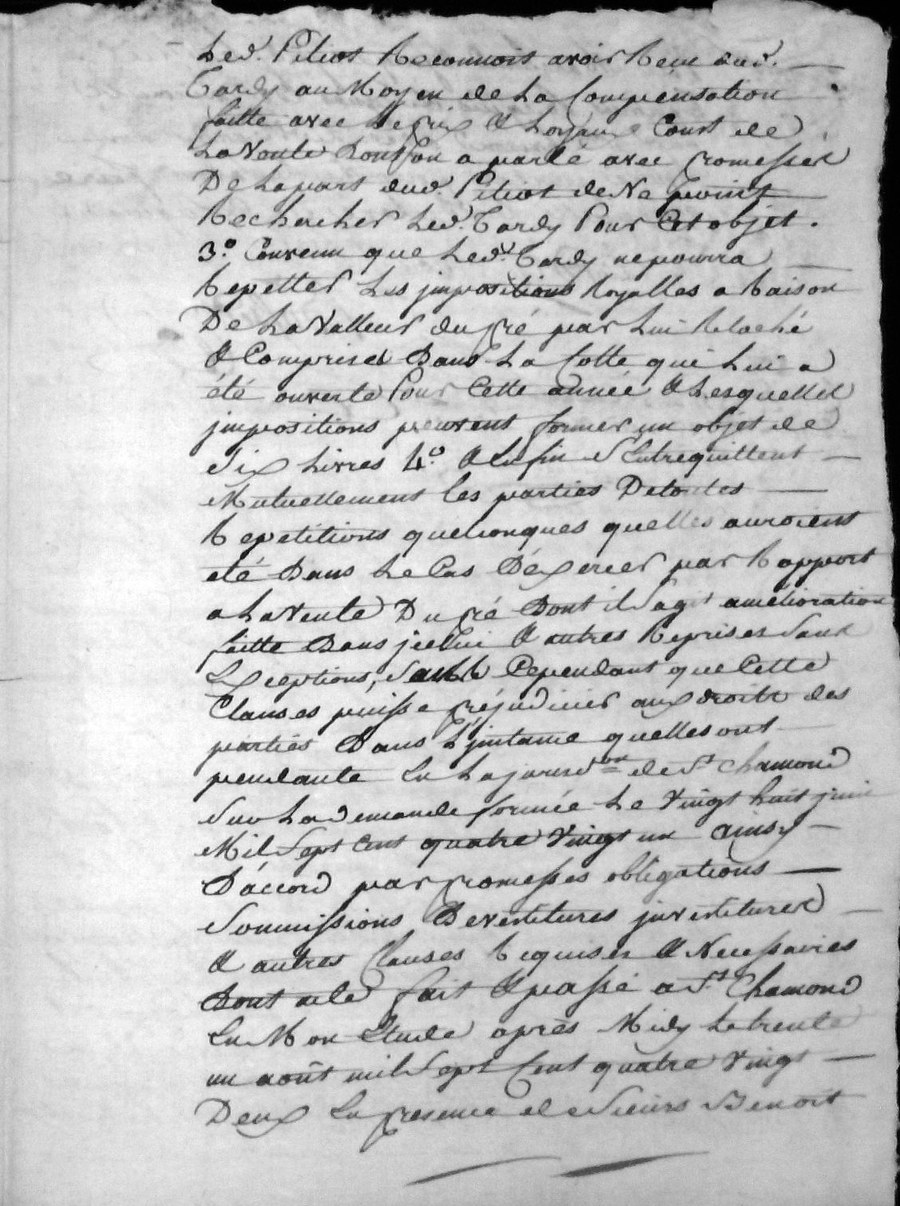 Led. Pitiot Reconnoit avoir Reçu dud.
Tardy au Moyen de La Compensation
faitte avec Le prix & Loyaux Cout de
La Vente Dont on a parlé avec promesses
De La part dud. Pitiot de Ne point
Rechercher Led. Tardy Pour Cet objet.
3.º Convenu que Led. Tardy ne pourra
Repetter Les jmpositions Royalles a Raison
De La Valleur du pré par Lui Relaché
& Comprises Dans La Cotte qui Lui a
été ouverte Pour Cette année & Lesquelles
jmpositions peuvent former un objet de
Six Livres 4.º & Enfin S'Entrequittent
Mutuellement les parties De toutes
Repetitions quelconques quelles auroient
été Dans Le Cas D'éxercer par Rapport
a La Vente Du pré Dont il S'agit amélioration
faitte Dans jcelui & autres Reprises Sans
Exceptions, Sans Cependant que Cette
Clauses puisse préjudicier aux droits des
parties Dans L'jnstance quelles ont
pendante En La jurisd.on de St. Chamond
Sur La demande formée Le Vingt huit juin
Mil Sept Cent quatre Vingt un ainsy
D'accord par promesses obligations
Soumissions Devestitures jnvestitures
& autres Clauses Requises & Necessaires
Dont acte fait & passé a St. Chamond
En Mon Etude après Midy Le trente
un août mil Sept Cent quatre Vingt
Deux En presence de Sieurs Benoit